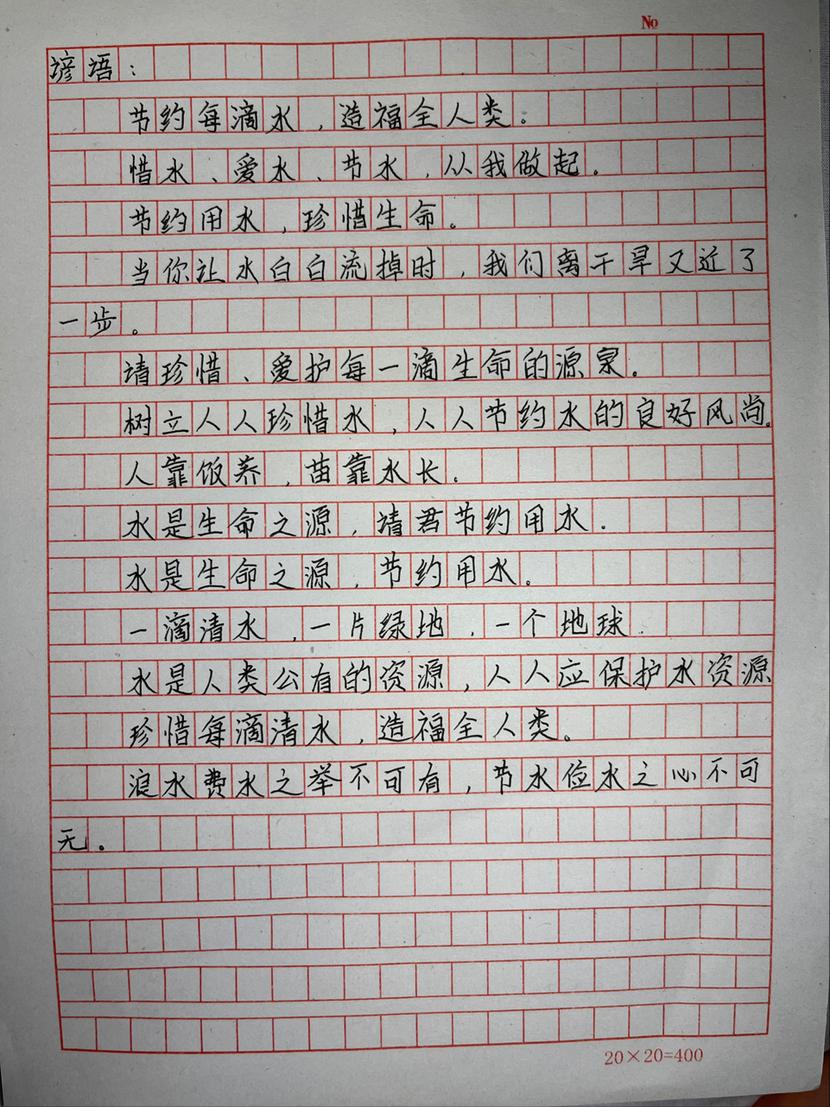 No
谚语：
节约每滴水，造福全人类。
惜水、爱水、节水，从我做起。
节约用水，珍惜生命。
当你让水白白流掉时，我们离干旱又近了
一步。
请珍惜、爱护每一滴生命的源泉。
树立人人珍惜水，人人节约水的良好风尚。
人靠饭养，苗靠水长。
水是生命之源，请君节约用水.
水是生命之源，节约用水。
一滴清水，一片绿地，一个地球.
水是人类公有的资源，人人应保护水资源
珍惜每滴清水，造福全人类。
浪水费水之举不可有，节水俭水之心不可
无。
20×20=400